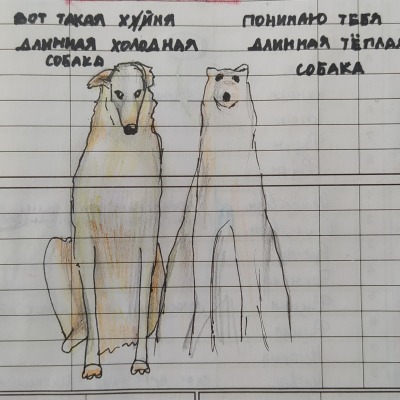 ВОТ ТАКАЯ ХУЙНЯ
ДЛИННАЯ ХОЛОДНАЯ
СОБАКА
ПОНИМАЮ ТЕБЯ
ДЛИННАЯ ТЁПЛАЯ
СОБАКА